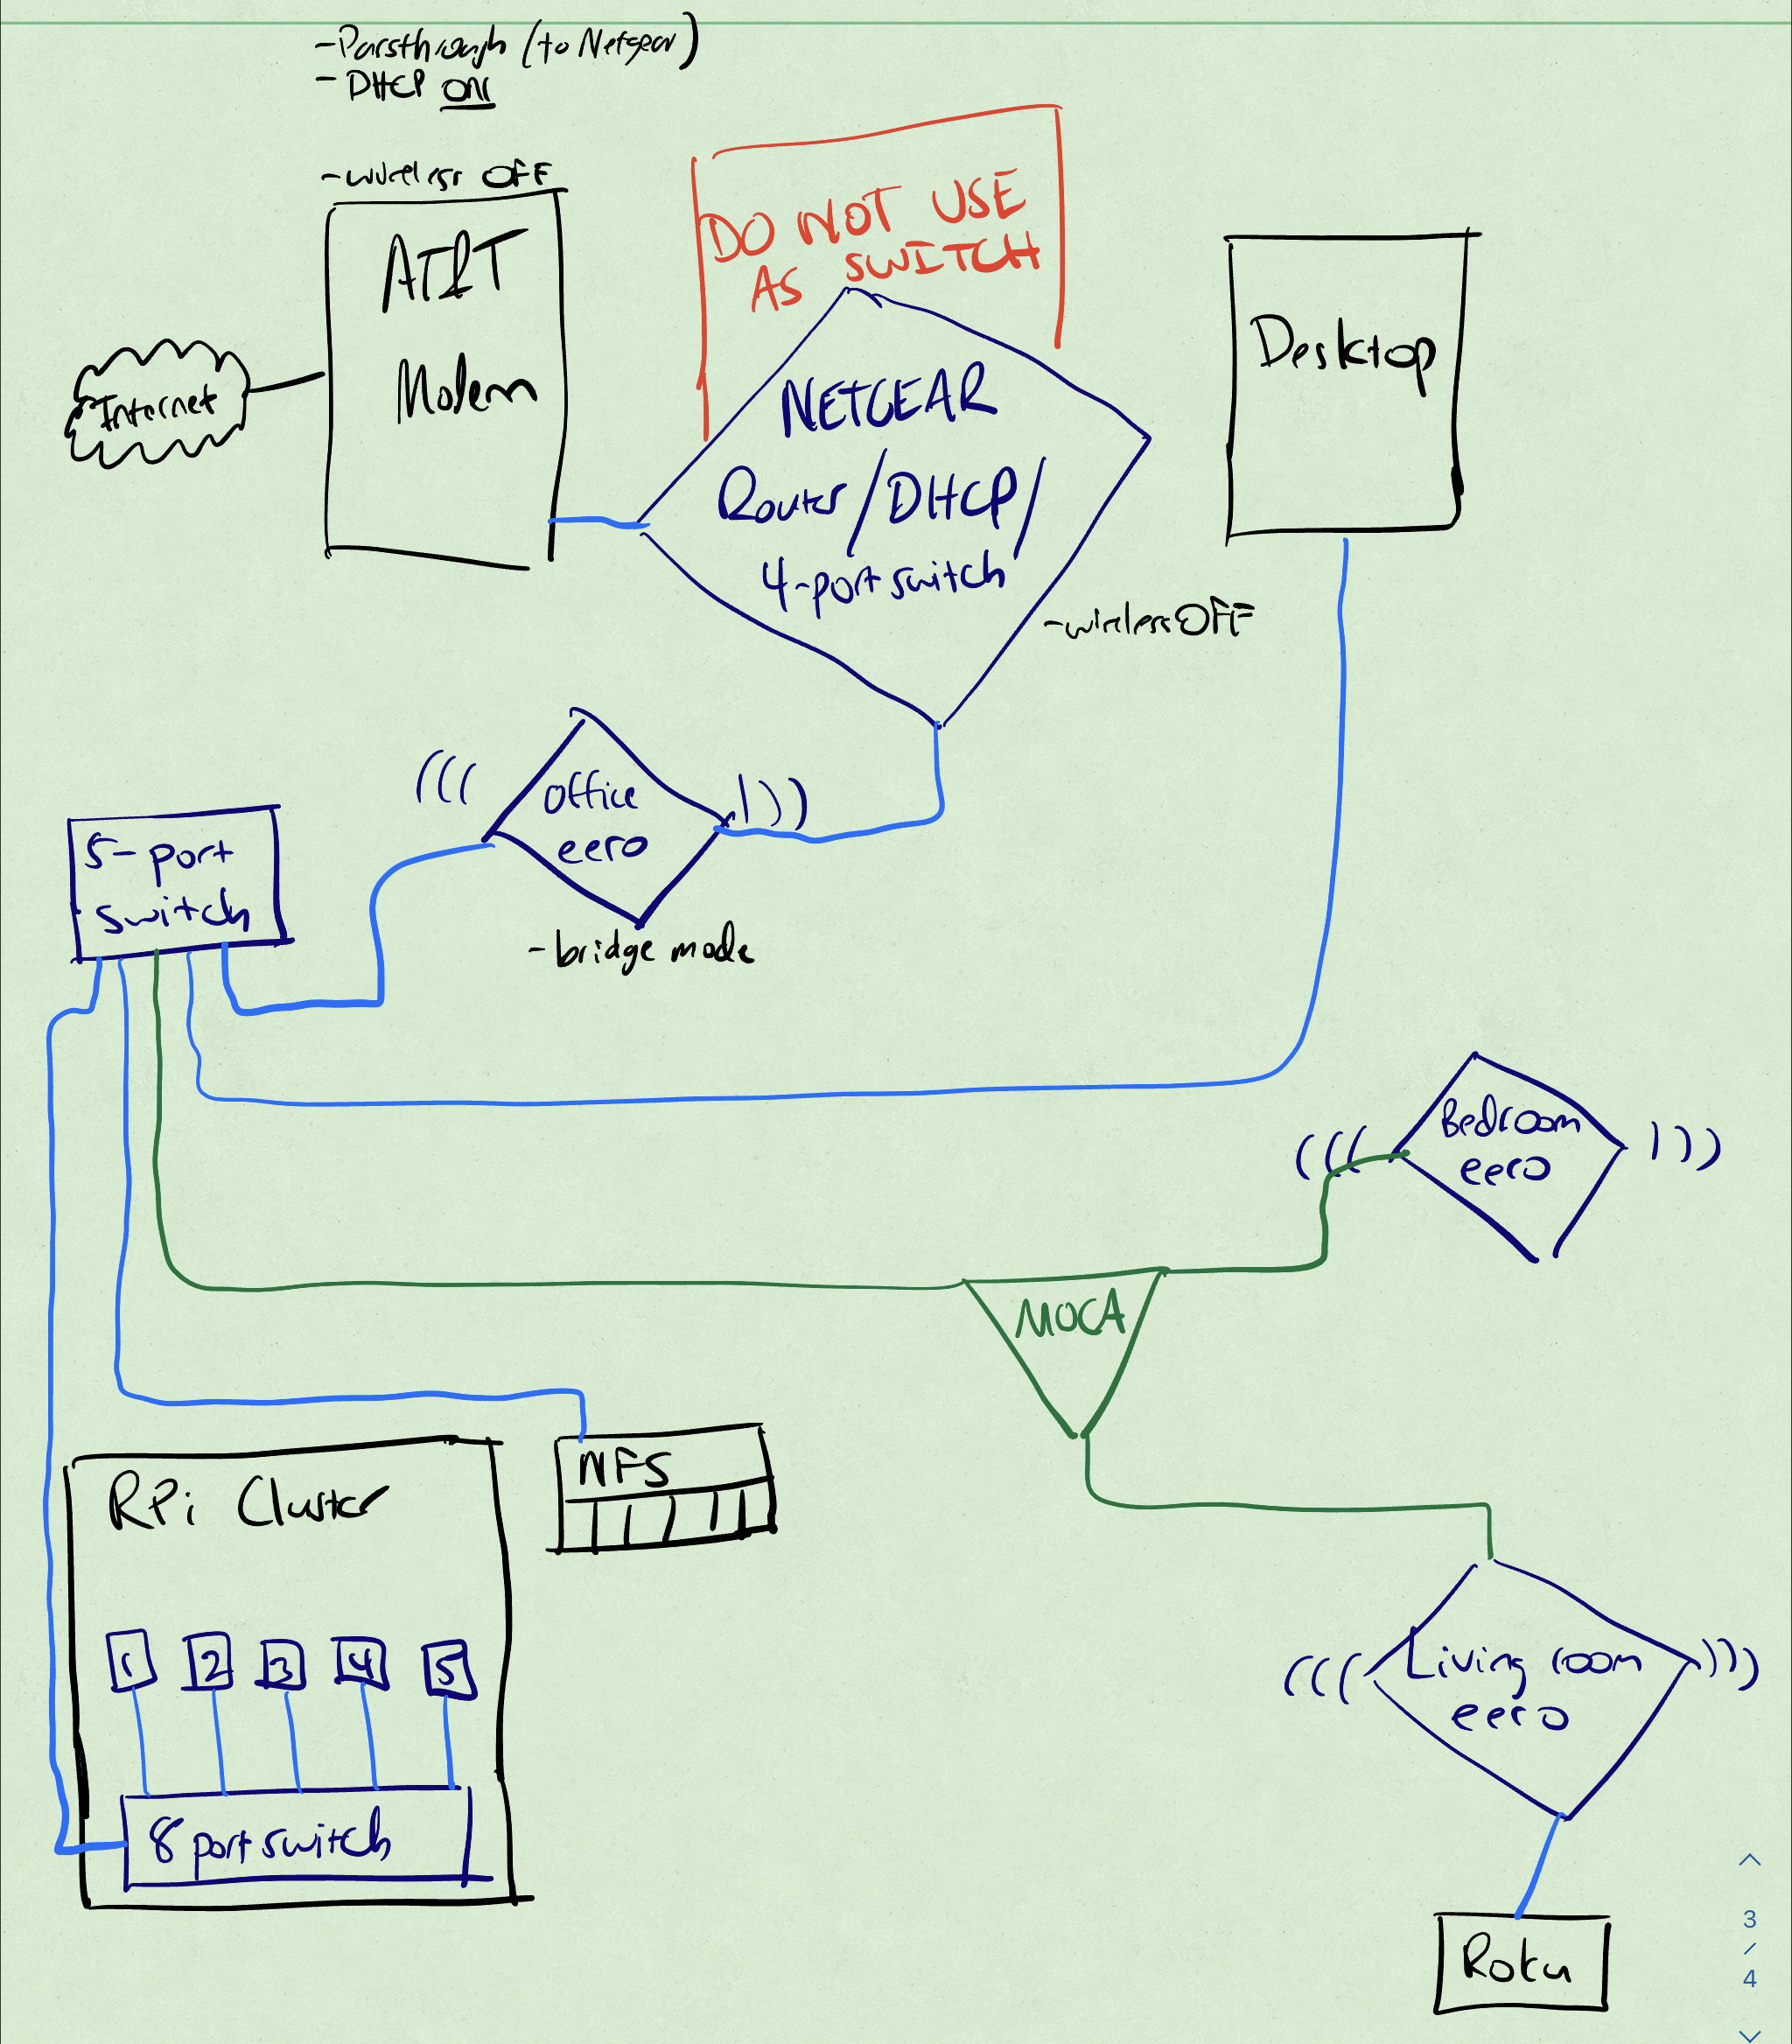 -Passthrough (to Netgear)
- DHCP ON
-wireless OFF
AT&T
Modem
Internet
DO NOT USE
AS SWITCH
NETGEAR
Router/DHCP/
4-port switch
-wireless OFF
Desktop
Office
eero
-bridge mode
5-port
switch
Bedroom
eero
MOCA
NFS
RPi Cluster
1 2 3 4 5
8 port switch
Living room
eero
Roku
3
/
4